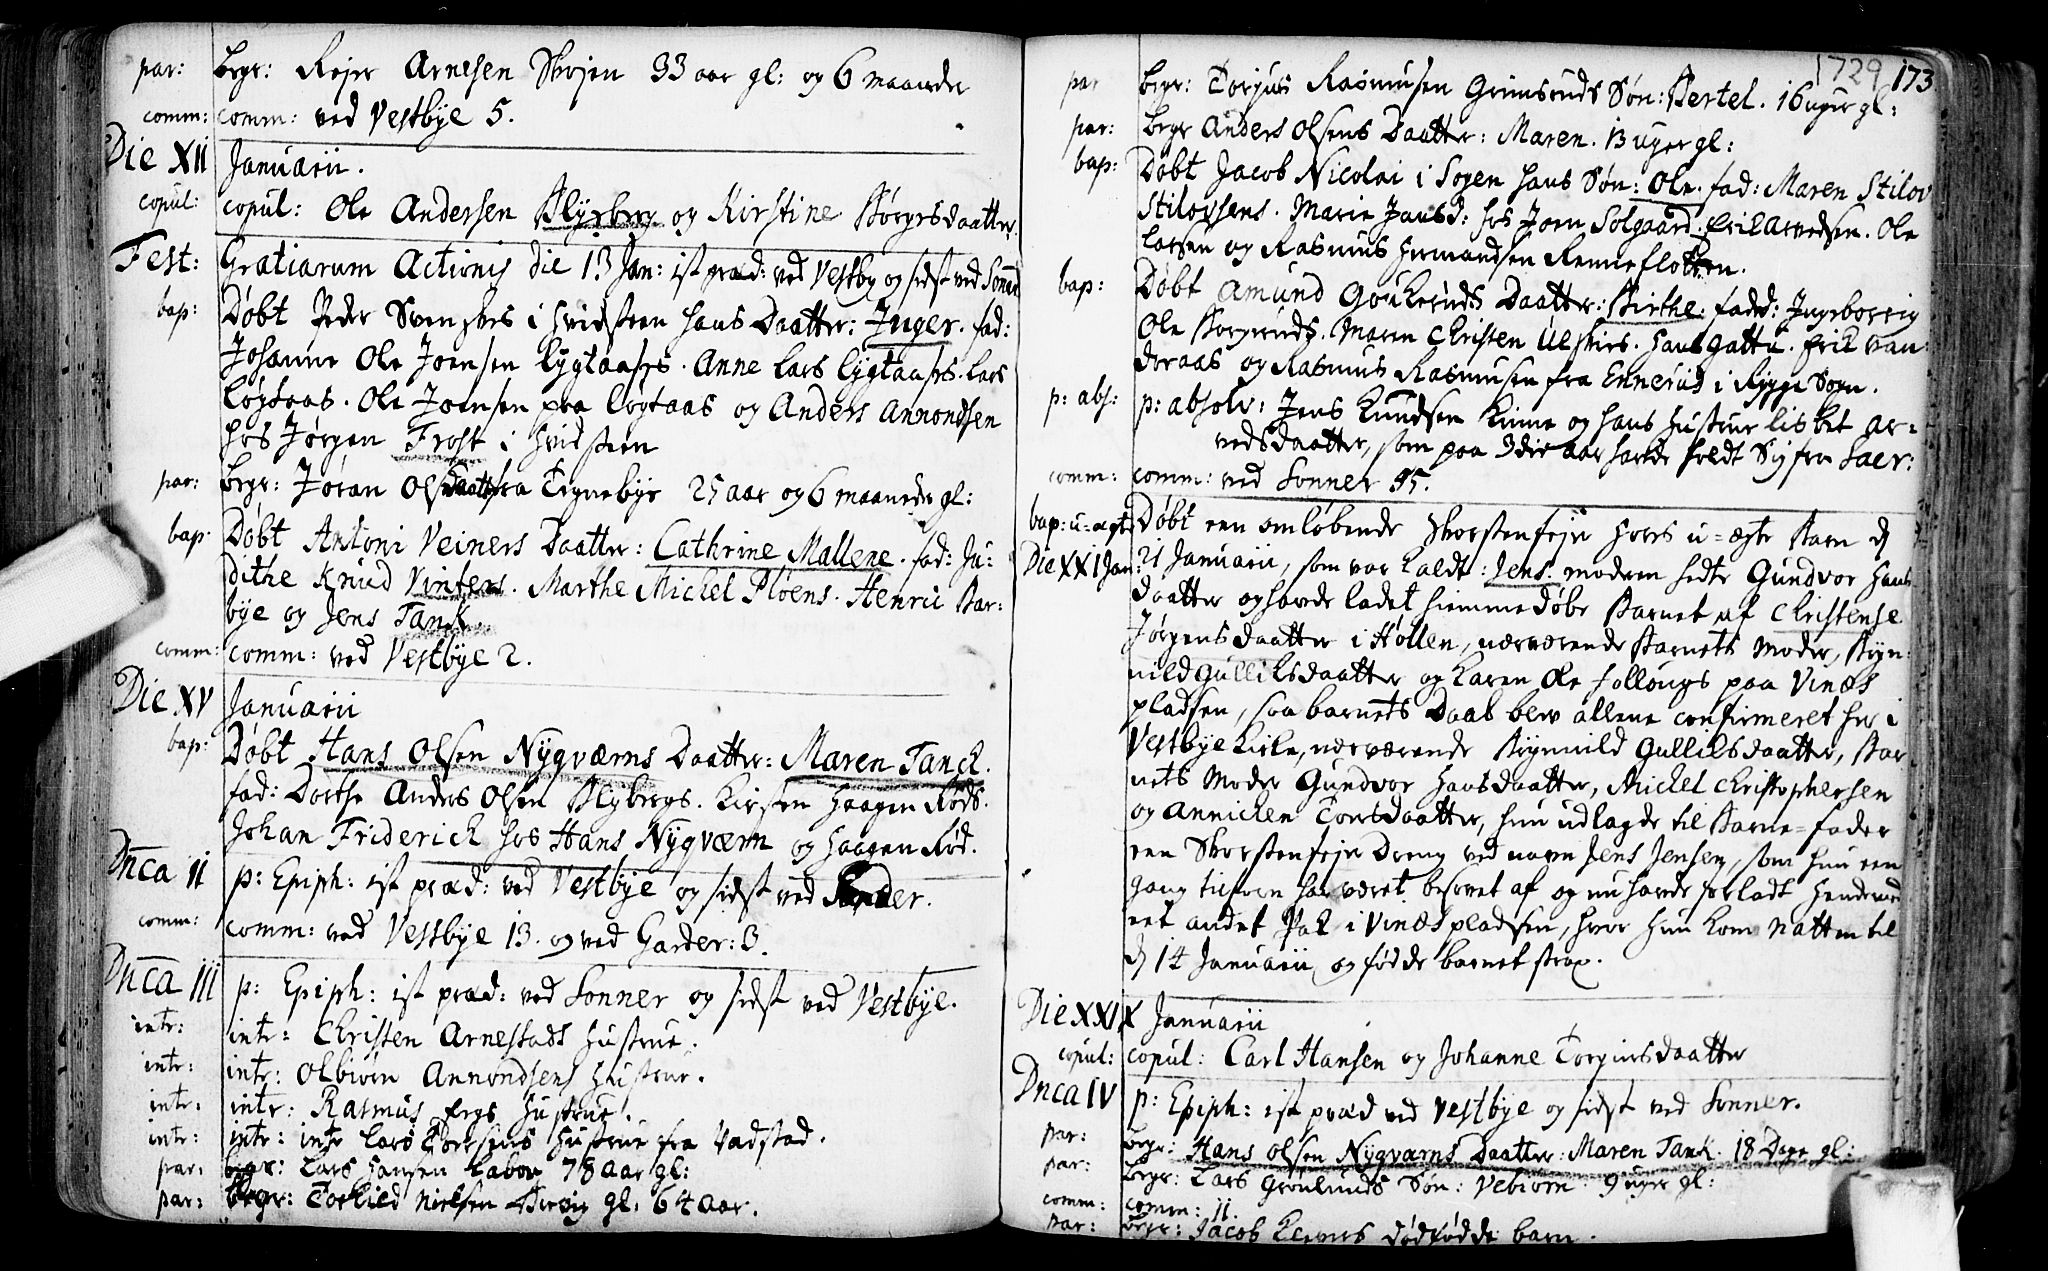 par: begr: Rejer Arnesen Skojen 33 aar gl: og 6 maaneder
comm: comm: ved Vestbye 5.
Die XII Januarii.
copul: copul: Ole Andersen Blyxberg og Kirstine Børgesdaatter
Fest: Gratiarum Actionis die 13 Jan: ist præd: ved Vestby og sidst ved
bap: Døbt Peder Svenskes i Hvidsteen hans Daatter: Inger. fad:
Johanne Ole Joensen Lygtaases. Anne Lars Lygtaases. Lars
Løgtaas. Ole Joensen paa Løgtaas og Anders Annondsen
hos Jørgen Frost i Hvidsteen
par: begr: Jøran Olsdaatter fra Tegnebye 25 aar og 6 maaneder gl:
bap: Døbt Antoni Veiners Daatter: Cathrine Mallene. fad: Ju:
dithe Knud Vinters. Marthe Michel Pløens. Henric Bar:
bye og Jens Tank.
comm: comm: ved Vestbye 2.
Die XV Januarii
bap: Døbt Hans Olsen Nygværns Daatter: Maren Tanck.
fad: Dorthe Anders Olsen Blybergs. Kirsten Haagen Røds.
Johan Friderich hos Hans Nygværn og Haagen Rød.
Dnca II p: Epiph: ist præd: ved Vestbye og sidst ved
comm: comm: ved Vestbye 13. og ved Garder: 3.
Dnca III p: Epiph: ist præd: ved Sonner og sidst ved Vestbye.
intr: intr: Christen Arnestads Hustrue.
intr: intr: Olbiørn Annondsens Hustrue.
intr: intr: Rasmus Hustrue.
intr: intr: intr Lars Torkesens Hustrue fra Vadstad.
par: begr: Lars Hansen Labou 78 aar gl:
par: begr: Torkild Nielsen gl: 64 aar.
1729 173
par begr: Torjus Rasmusen Grimsruds Søn: Bertel. 16 uger gl:
par: begr Anders Olsens Daatter: Maren. 13 uger gl:
bap: Døbt Jacob Nicolai i Sogen hans Søn: Ole. fad: Maren Stilov
Stilovsens. Marie Jansd: hos Joen Solgaard. Eric Arvedsen. Ole
Larsen og Rasmus Hermandsen Renneflotten.
bap: Døbt Amund Goukeruds Daatter: Birthe. fadd: Ingeborrig
Ole Borgeruds. Maren Christen Ulskies. Hans Gattu. Eric Van:
deraas og Rasmus Rasmusen fra Ennerud i Rygge Sogn.
p: abs: p: absolv: Jens Knudsen Kinne og hans Hustrue Lisbet Ar:
vedsdaatter, som paa 3die aar havde holdt Sig fra Sacr:
comm: comm: ved Sonner 95.
bap: u-ægte Døbt een omløbende Skorsteenfejer Hores u-ægte Barn d
Die XXI Jan: 21 Januarii, som var kaldt: Jens. moderen hedte Gundvor Hans
daatter og havde ladet hiemmedøbe Barnet af Christense
Jørgensdaatter i Hollen, nærværende Barnets Moder, Bryn:
nild Gulliksdaatter og Karen Ole Follougs paa Vinæs
pladsen, saa barnets Daab blev allene confirmeret her i
Vestbye Kirke, nærværende Brynnild Gulliksdaatter, Bar
nets Moder Gundvor Hansdaatter, Michel Christophersen
og Annichen Toersdaatter, hun udlagde til Barne-fader
een Skorsteenfejer Dreng ved navn Jens Jensen, som hun een
gang tilforn har været besovet af og nu havde forladt hende
eet andet Pak i Vinæspladsen, hvor hun kom Natten til
d 14 Januarii, og fødde barnet strax.
Die XXIX Januarii
copul: copul: Carl Hansen og Johanne Torgiersdaatter
Dnca IV p: Epiph: ist præd ved Vestbye og sidst ved Sonner.
par: begr: Hans Olsen Nygværns Daatter: Maren Tank. 18 Dage gl:
par: begr: Lars Grønlunds Søn: Vebiørn. 9 uger gl:
comm: comm: 11.
par: begr: Jacob dødfødde barn.